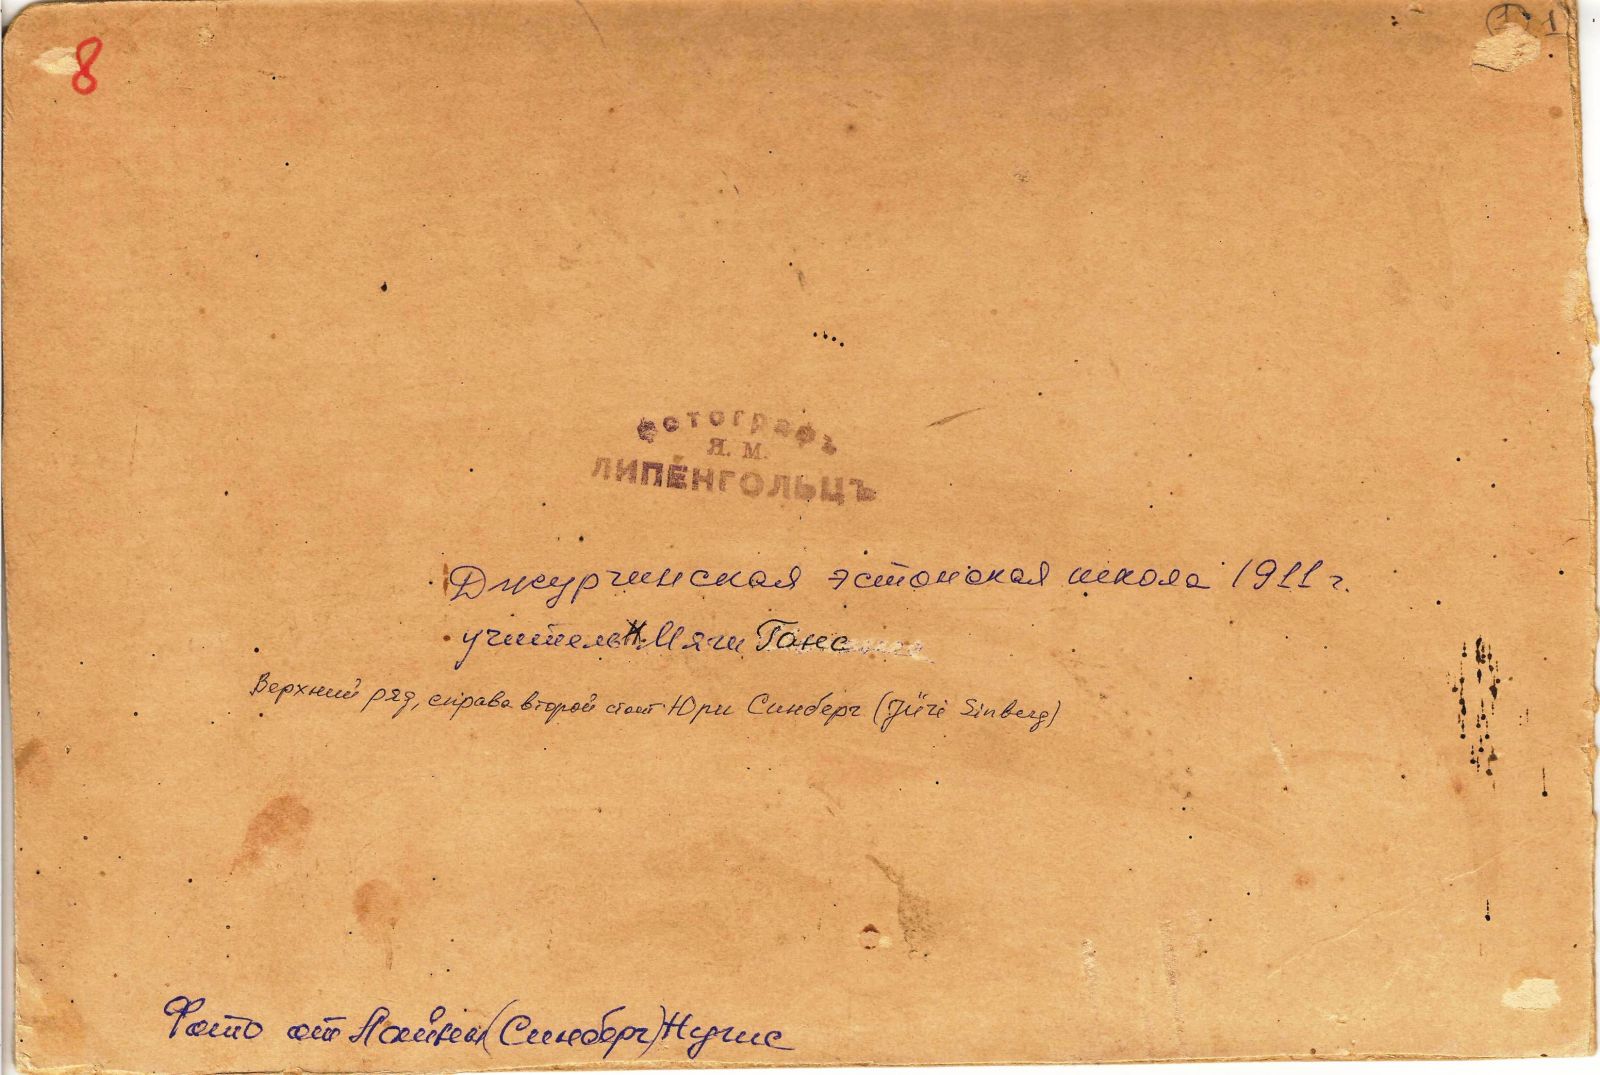 8
1 1
Фотографъ
Я. М.
ЛИПЕНГОЛЬЦЪ
Джурчинская эстонская школа 1911 г.
учитель Мяги Ганс
Верхний ряд, справа второй стоит Юри Синберг (Jüri Sinberg)
Фото от Лайны (Синберг) Нугис